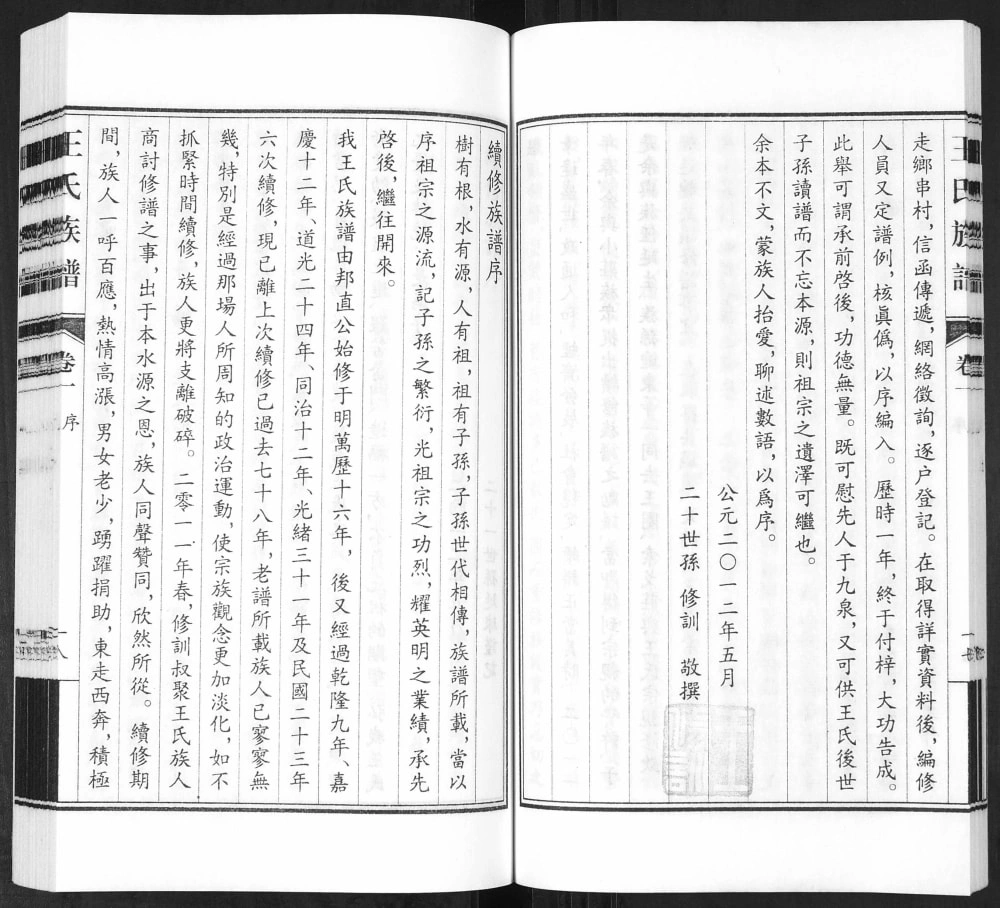 王氏族譜
卷一
走鄉串村，信函傳遞，網絡徵詢，逐户登記。在取得詳實資料後，編修
人員又定譜例，核眞僞，以序編入。歷時一年，終于付梓，大功告成。
此舉可謂承前啓後，功德無量。既可慰先人于九泉，又可供王氏後世
子孫讀譜而不忘本源，則祖宗之遺澤可繼也。
余本不文，蒙族人抬愛，聊述數語，以爲序。
公元二〇一二年五月
二十世孫 修訓 敬撰
續修族譜序
樹有根，水有源，人有祖，祖有子孫，子孫世代相傳，族譜所載，當以
序祖宗之源流，記子孫之繁衍，光祖宗之功烈，耀英明之業績，承先
啓後，繼往開來。
我王氏族譜由邦直公始修于明萬歷十六年，後又經過乾隆九年、嘉
慶十二年、道光二十四年、同治十二年、光緒三十一年及民國二十三年
六次續修，現已離上次續修已過去七十八年，老譜所載族人已寥寥無
幾，特別是經過那場人所周知的政治運動，使宗族觀念更加淡化，如不
抓緊時間續修，族人更將支離破碎。二零一一年春，修訓叔聚王氏族人
商討修譜之事，出于本水源之恩，族人同聲贊同，欣然所從。續修期
間，族人一呼百應，熱情高漲，男女老少，踴躍捐助，東走西奔，積極
王氏族譜
卷一
序
一八